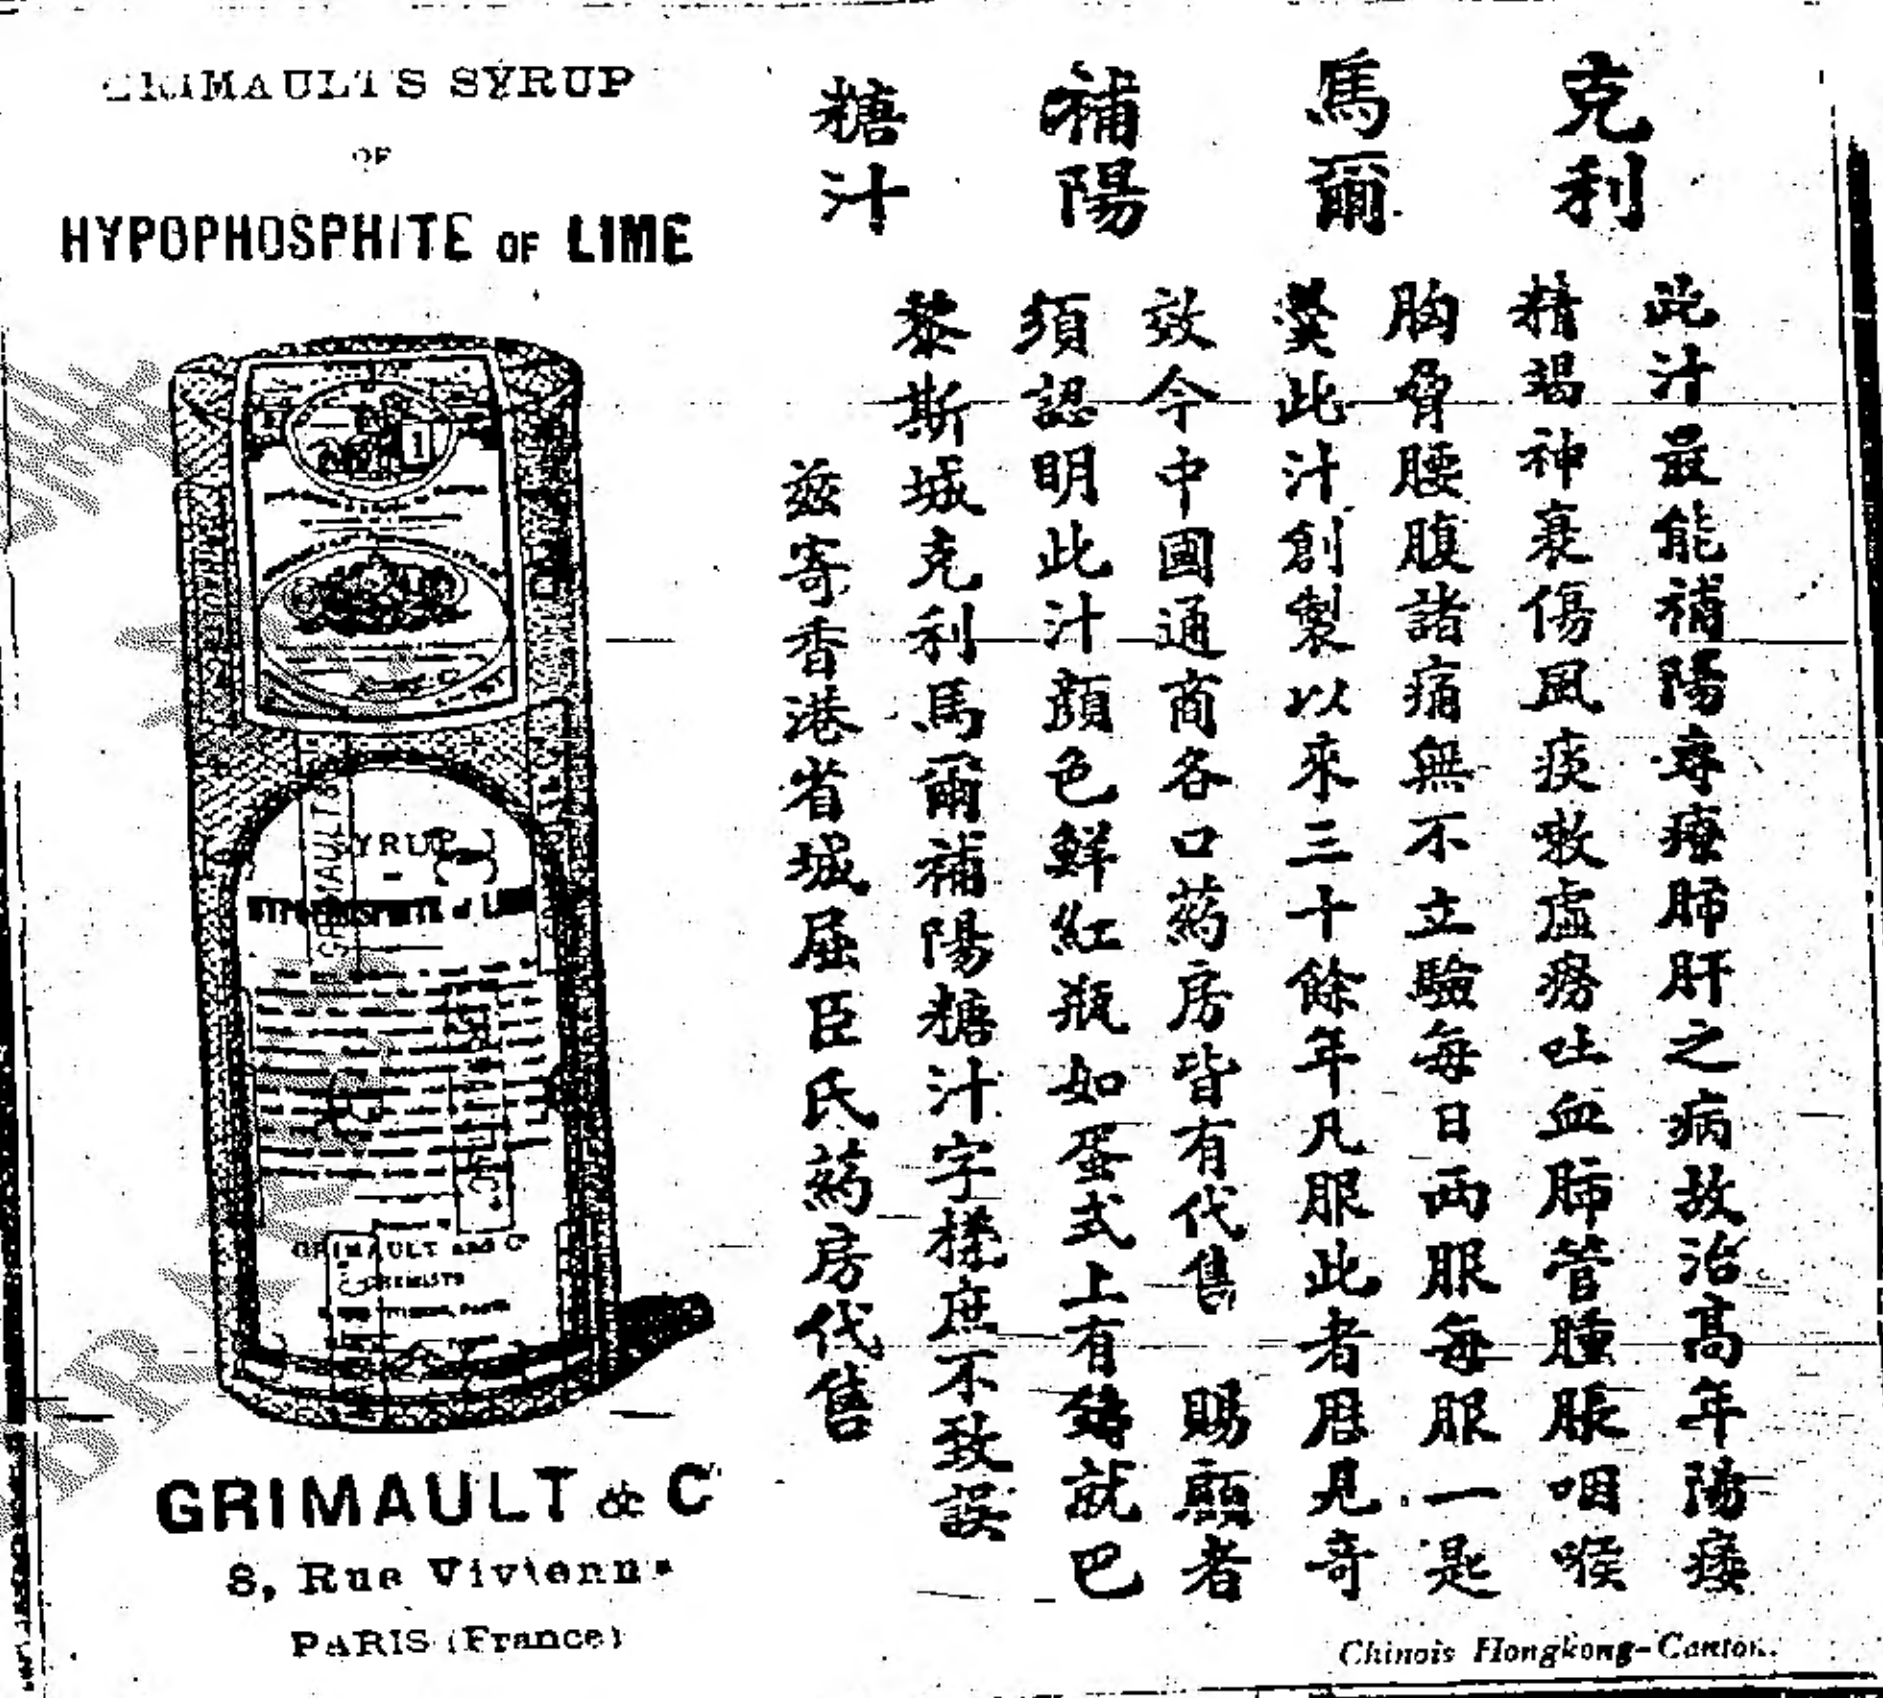 GRIMAULT'S SYRUP
OF
HYPOPHOSPHITE OF LIME
GRIMAULT & C
8, Rue Vivienne
PARIS (France)
克利
馬爾
補陽
糖汁
此汁最能補陽專療肺肝之病故治高年陽痿
精竭神衰傷風痰嗽虛癆吐血肺管腫脹咽喉
胸脅腰腹諸痛無不立驗每日兩服每服一匙
羹此汁創製以來三十餘年凡服此者居見奇
效今中國通商各口葯房皆有代售 賜顧者
須認明此汁顏色鮮紅瓶如蛋式上有鑄就巴
黎斯城克利馬爾補陽糖汁字樣庶不致誤
茲寄香港省城屈臣氏葯房代售
Chinois Hongkong-Canton.